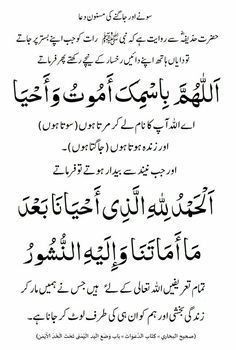 سونے اور جاگنے کی مسنون دعا
حضرت حذیفہؓ سے روایت ہے کہ نبی ﷺ رات کو جب اپنے بستر پر جاتے
تو دایاں ہاتھ اپنے دائیں رخسار کے نیچے رکھتے پھر فرماتے
اَللّٰهُمَّ بِاسْمِكَ أَمُوتُ وَ أَحْيَا
اے اللہ آپ کا نام لے کر مرتا ہوں (سوتا ہوں)
اور زندہ ہوتا ہوں (جاگتا ہوں)۔
اور جب نیند سے بیدار ہوتے تو فرماتے
اَلْحَمْدُ لِلّٰهِ الَّذِي أَحْيَانَا بَعْدَ
مَا أَمَاتَنَا وَإِلَيْهِ النُّشُورُ
تمام تعریفیں اللہ تعالی کے لئے ہیں جس نے ہمیں مار کر
زندگی بخشی اور ہم کو ان ہی کی طرف لوٹ کر جانا ہے۔
(صحيح البخاري - كتاب الدعوات - باب وضع اليد اليمنى تحت الخد الأيمن)